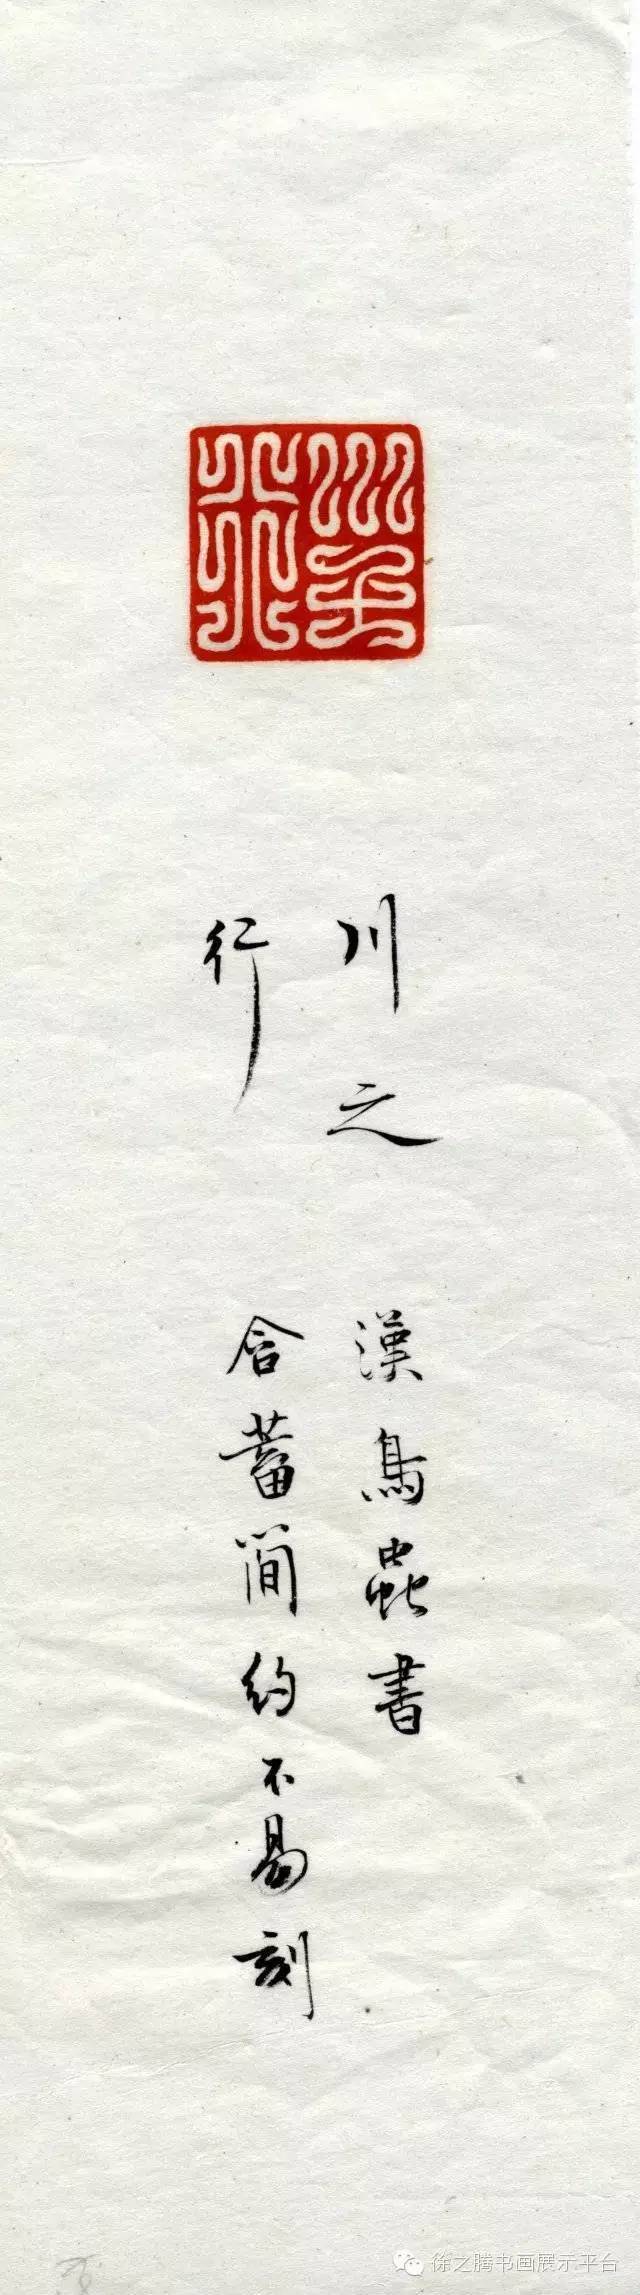 川之
行
川之
行
漢鳥蟲書
含蓄簡約不易刻
徐之腾书画展示平台